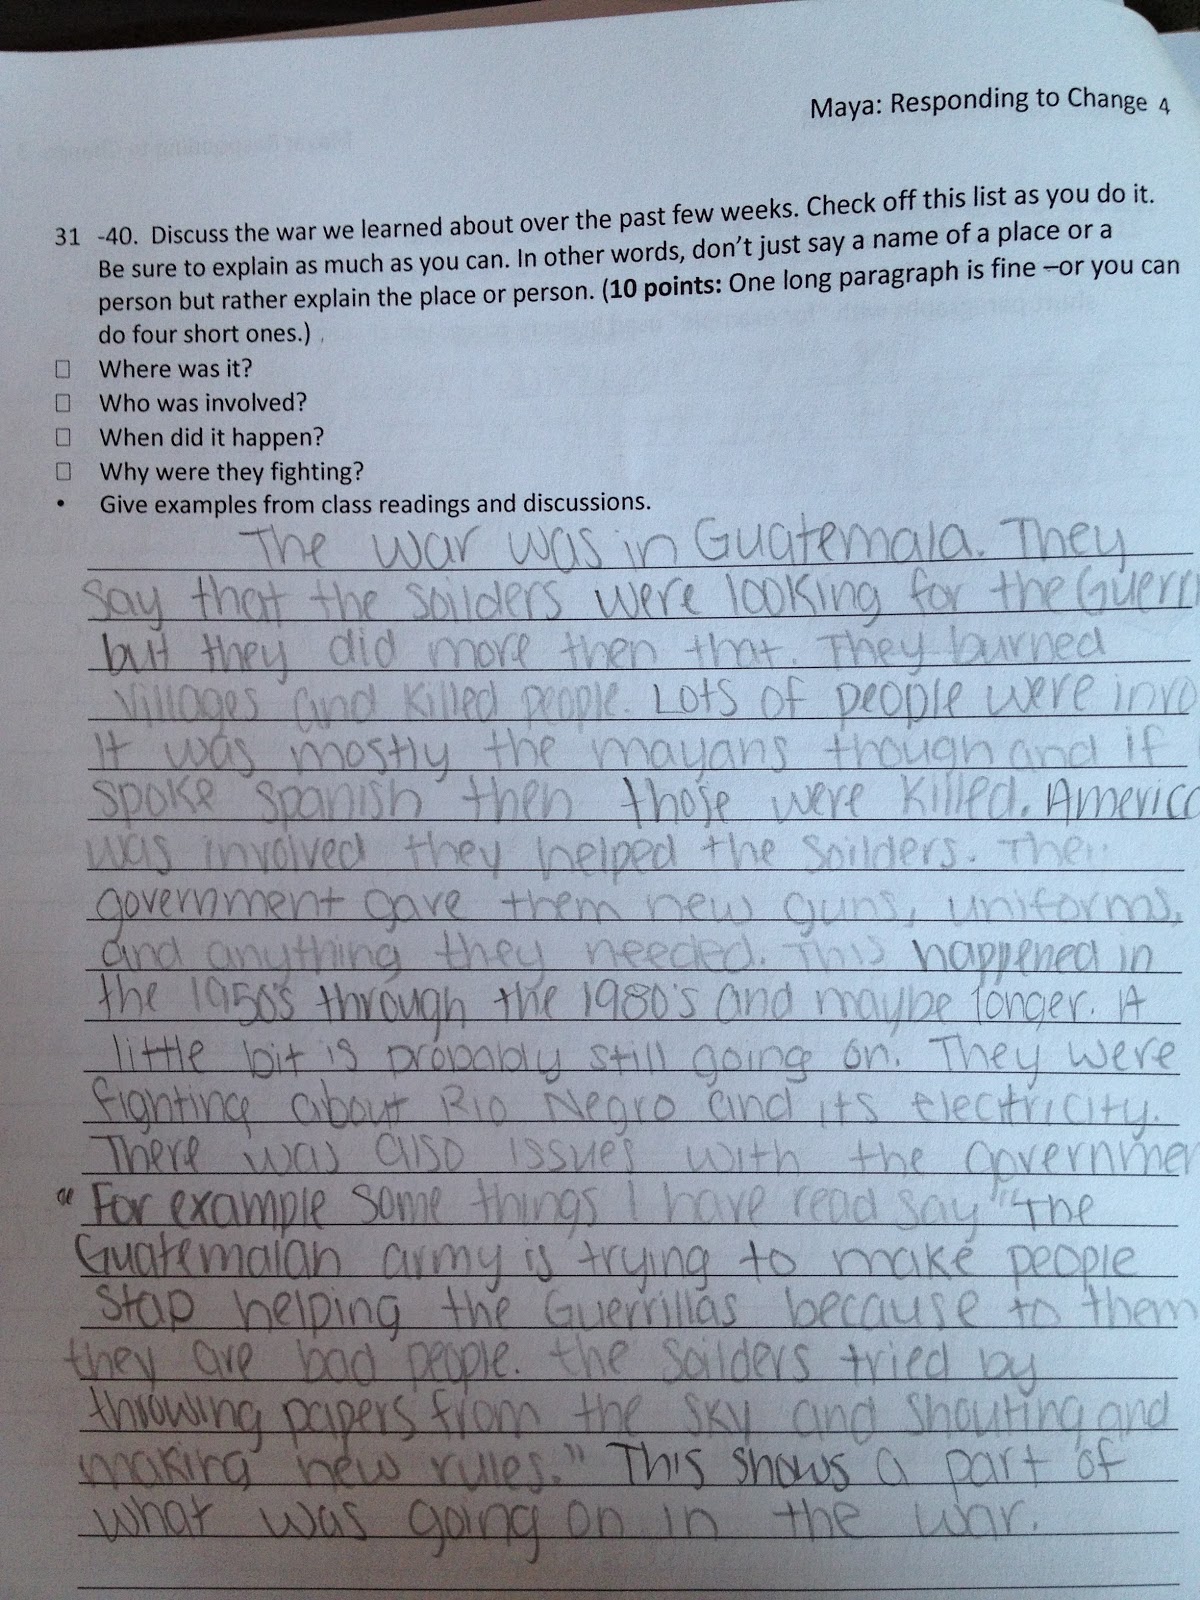 Maya: Responding to Change 4
31 -40. Discuss the war we learned about over the past few weeks. Check off this list as you do it.
Be sure to explain as much as you can. In other words, don't just say a name of a place or a
person but rather explain the place or person. (10 points: One long paragraph is fine –or you can
do four short ones.)
☐ Where was it?
☐ Who was involved?
☐ When did it happen?
☐ Why were they fighting?
• Give examples from class readings and discussions.
The war was in Guatemala. They
say that the soilders were looking for the Guerr
but they did more then that. They burned
villages and killed people. Lots of people were invo
It was mostly the mayans though and if
spoke spanish then those were killed. America
was involved they helped the soilders. Their
government gave them new guns, uniforms,
and anything they needed. This happened in
the 1950's through the 1980's and maybe longer. A
little bit is probably still going on. They were
fighting about Rio Negro and its electricity.
There was also issues with the governmen
" For example some things I have read say "The
Guatemalan army is trying to make people
stop helping the Guerrillas because to them
they are bad people. the soilders tried by
throwing papers from the sky and shouting and
making new rules." This shows a part of
what was going on in the war.